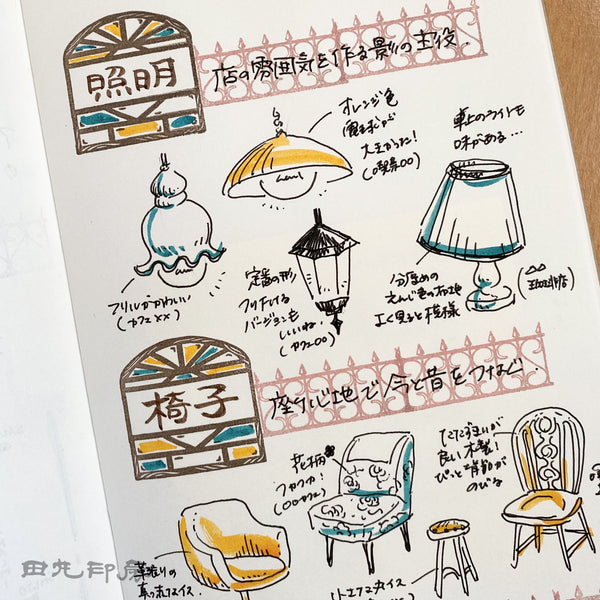 照明
店の雰囲気を作る影の主役.
オレンジ色
大きかった!
(○喫茶○○)
卓上のライトも
味がある…
フリルがかわいい
(カフェ××)
定番の形
バージョンも
いいね!
(カフェ○○)
分厚めの
えんじ色の布地
よく見ると模様
(△△
珈琲店)
椅子
座り心地で今と昔をつなぐ.
花柄
フカフカ!
(○○カフェ)
たたずまいが
良い木製!
ぴっと背筋が
のびる
革張りの
真っ赤なイス.
小さな丸イス